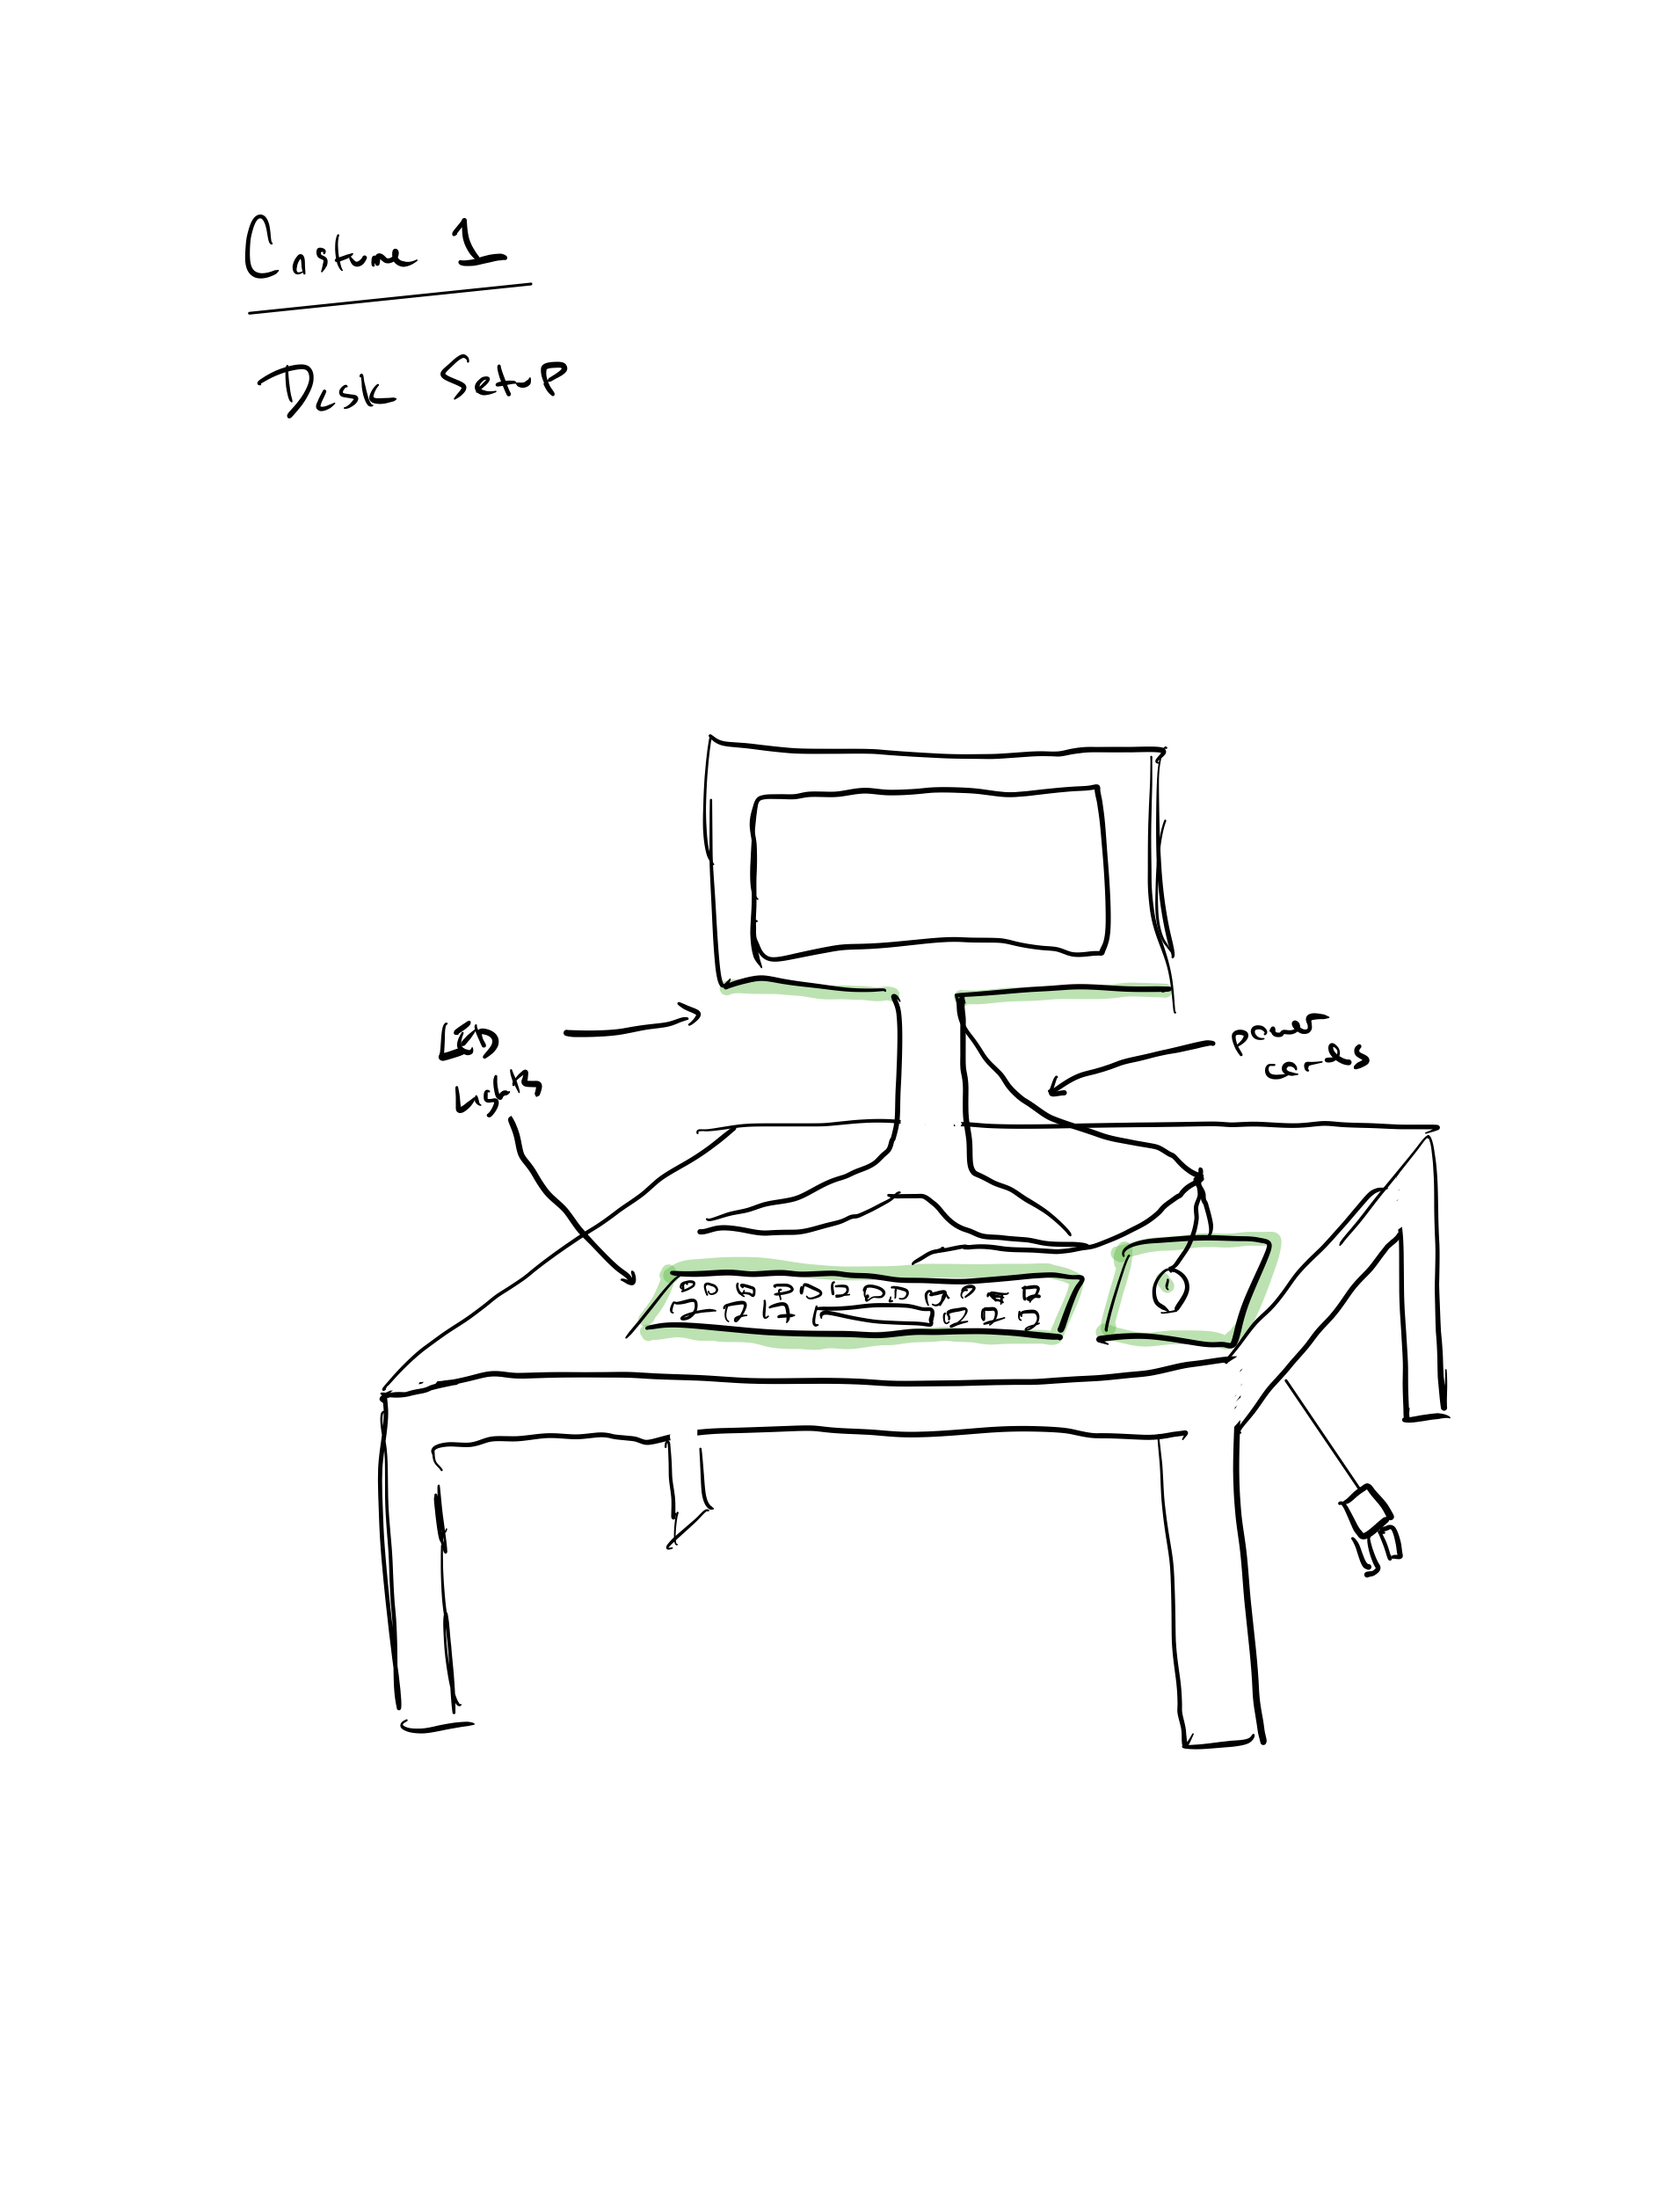 Costume 1
Desk Setup
LED
Lights
power
cords